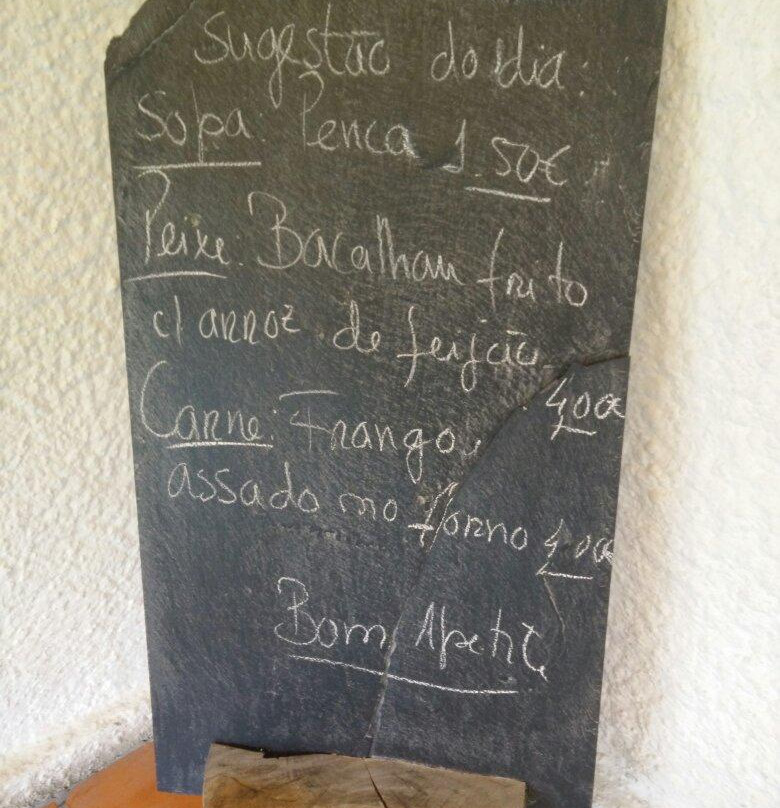 Sugestão do dia:
Sopa: Penca 1.50€
Peixe: Bacalhau frito
c/ arroz de feijão
4,00€
Carne: Frango
assado no forno 4,00€
Bom Apetite